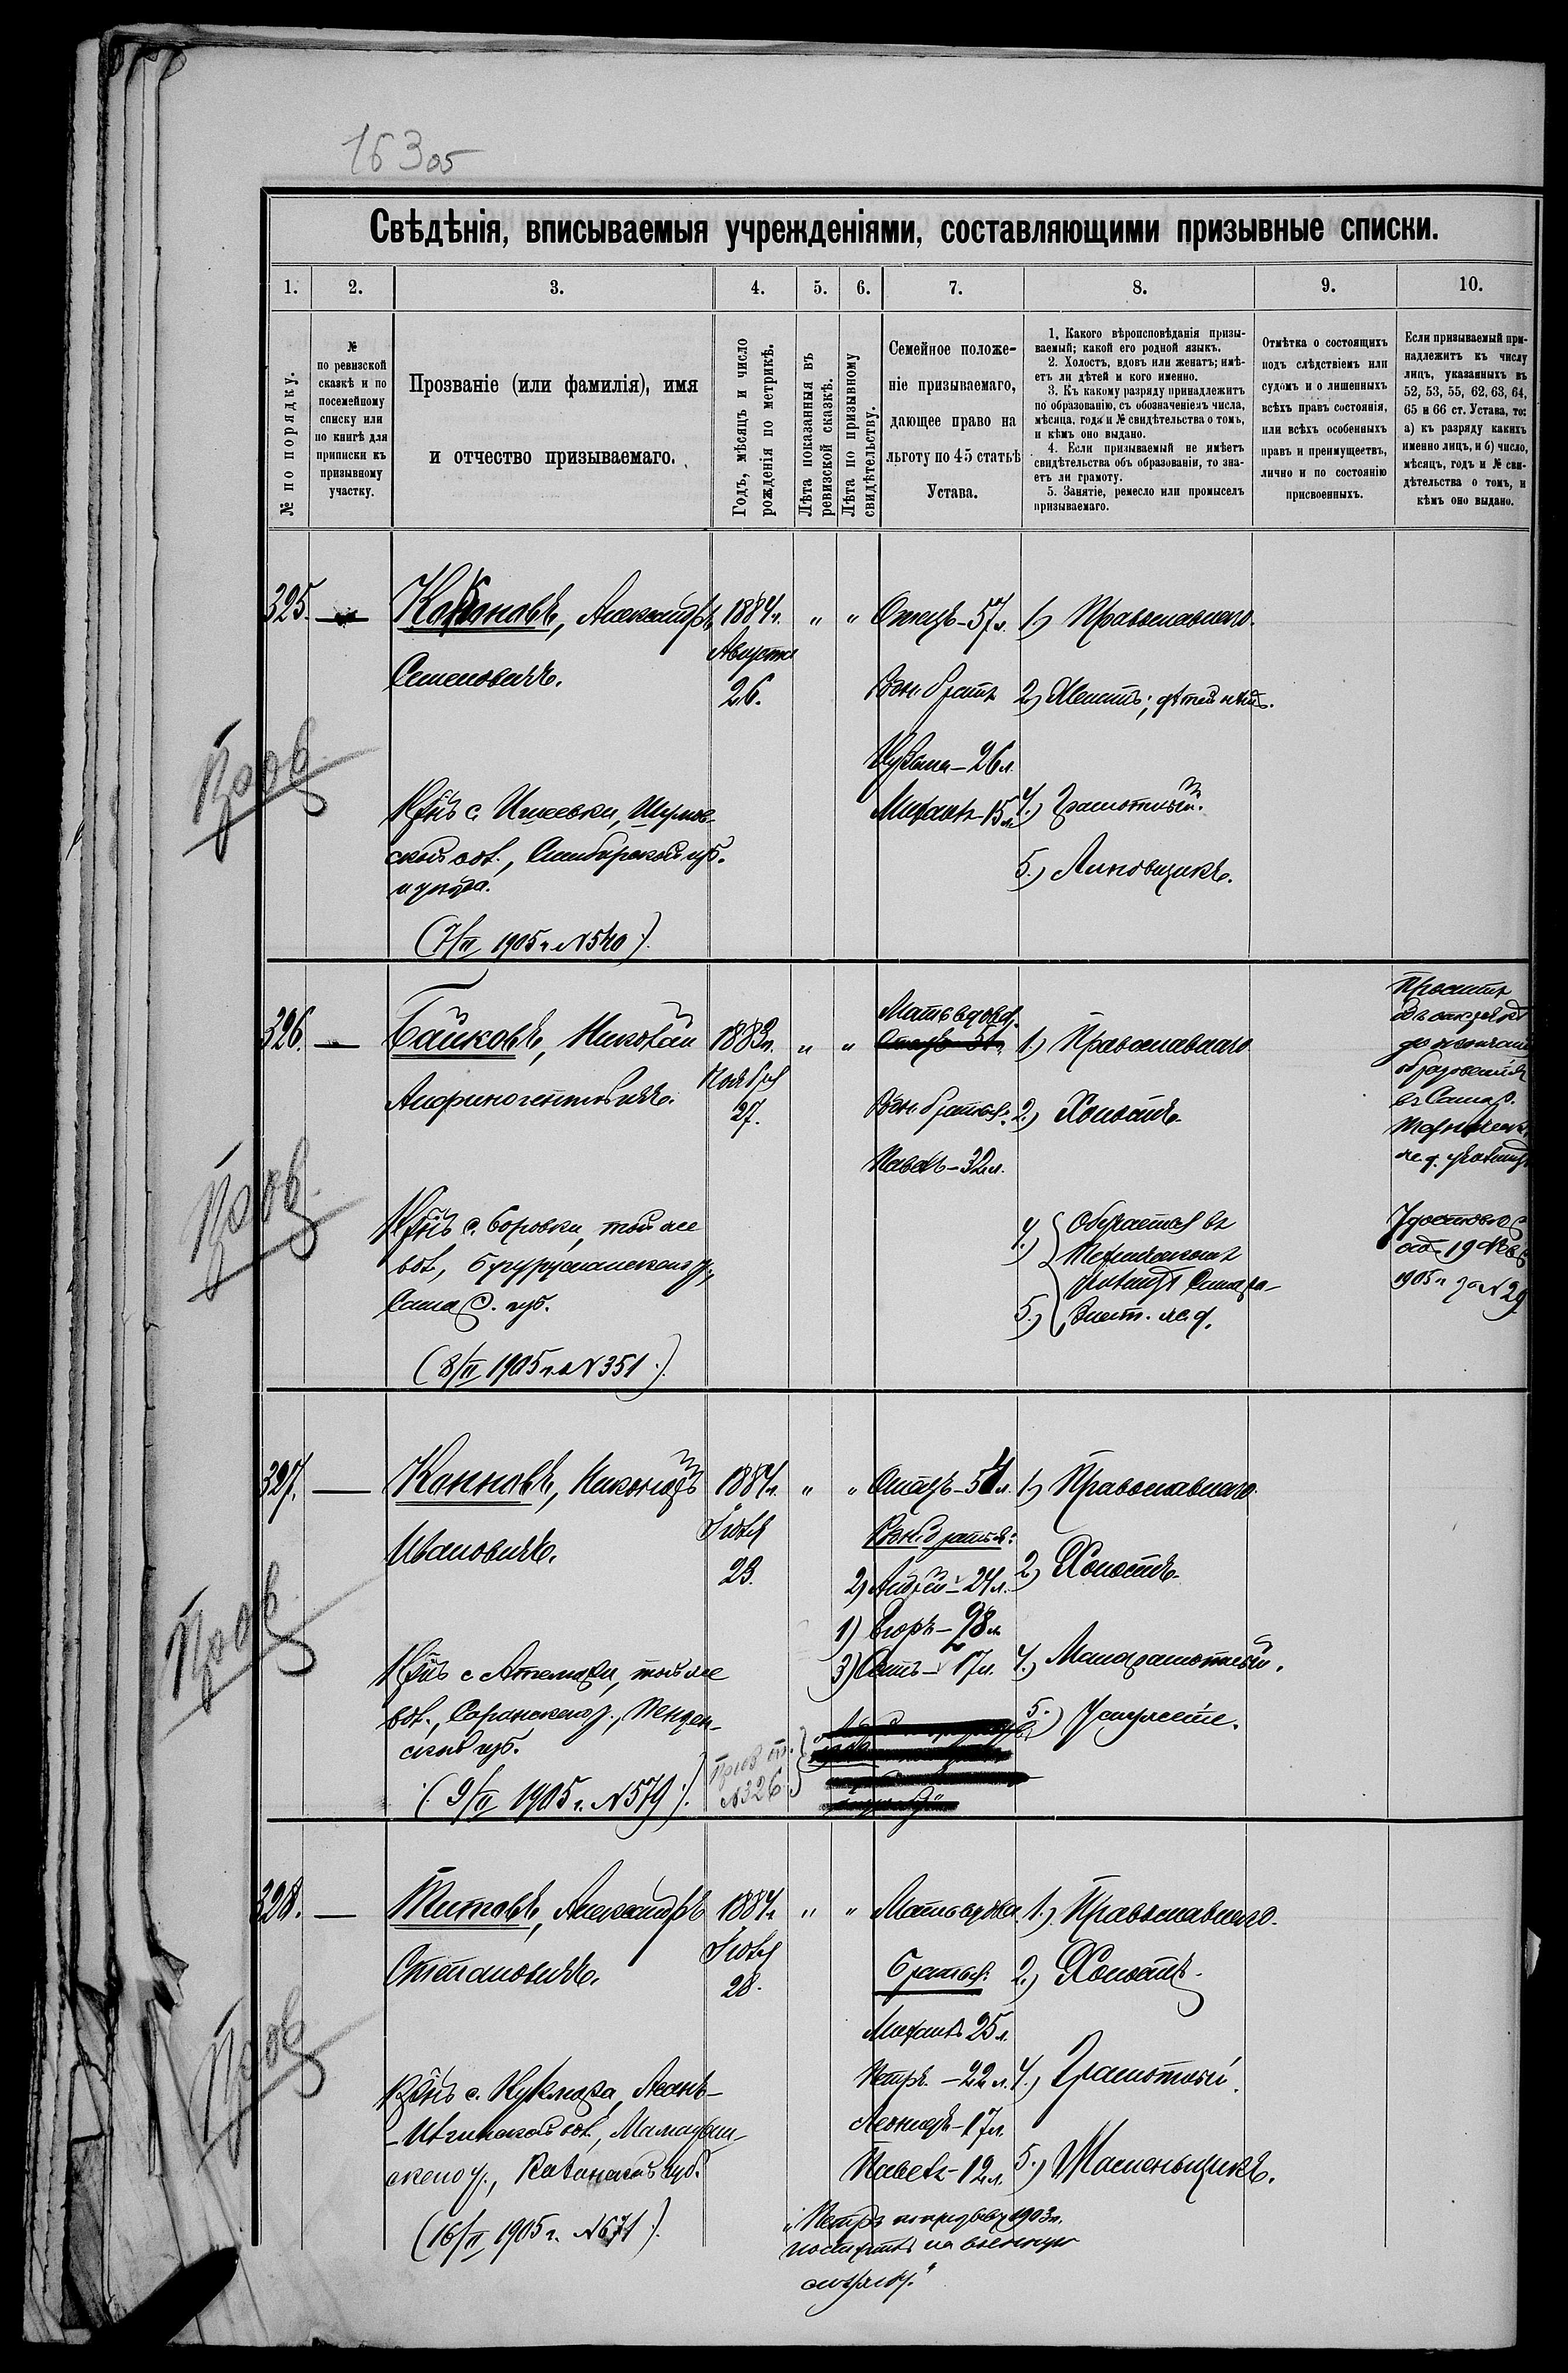 163 05
Свѣдѣнія, вписываемыя учрежденіями, составляющими призывные списки.
1. 2. 3. 4. 5. 6. 7. 8. 9. 10.
№ по порядку.
№
по ревизской
сказкѣ и по
посемейному
списку или
по книгѣ для
приписки къ
призывному
участку.
Прозваніе (или фамилія), имя
и отчество призываемаго.
Годъ, мѣсяцъ и число
рожденія по метрикѣ.
Лѣта показанныя въ
ревизской сказкѣ.
Лѣта по призывному
свидѣтельству.
Семейное положе-
ніе призываемаго,
дающее право на
льготу по 45 статьѣ
Устава.
1. Какого вѣроисповѣданія призы-
ваемый; какой его родной языкъ.
2. Холостъ, вдовъ или женатъ; имѣ-
етъ ли дѣтей и кого именно.
3. Къ какому разряду принадлежитъ
по образованію, съ обозначеніемъ числа,
мѣсяца, года и № свидѣтельства о томъ,
и кѣмъ оно выдано.
4. Если призываемый не имѣетъ
свидѣтельства объ образованіи, то зна-
етъ ли грамоту.
5. Занятіе, ремесло или промыселъ
призываемаго.
Отмѣтка о состоящихъ
подъ слѣдствіемъ или
судомъ и о лишенныхъ
всѣхъ правъ состоянія,
или всѣхъ особенныхъ
правъ и преимуществъ,
лично и по состоянію
присвоенныхъ.
Если призываемый при-
надлежитъ къ числу
лицъ, указанныхъ въ
52, 53, 55, 62, 63, 64,
65 и 66 ст. Устава, то:
а) къ разряду какихъ
именно лицъ, и б) число,
мѣсяцъ, годъ и № сви-
дѣтельства о томъ, и
кѣмъ оно выдано.
325. — Александръ
Семеновичъ.
1884г.
Августа
26.
" "
Отецъ – 57 л.
Родн. братья
Кузьма – 26 л.
Михаилъ – 15 л.
1.) Православнаго.
2.) Женатъ; дѣтей нѣтъ.
4.) Грамотный.
5.)
Кр-нъ с.
ской вол., Симбирской губ.
и уѣзда.
(7/II 1905 г. № 540).
326. — Байковъ, Николай
Анфиногентовичъ.
1883г.
Ноября
27.
" "
Мать вдова.
Родн. братья:
Павелъ – 32 л.
1.) Православнаго
2.) Холостъ.
4.) Обучается въ
Техническомъ
училищѣ Самаро-
5.) Злат. ж. д.
Проситъ
объ отсрочкѣ
до окончанія
образованія
въ Самар.
Техническ.
ж. д. училищѣ
19
1905 г. за № 29
Кр-нъ с. Боровки, той же
вол., Бугурусланскаго у.,
Самар. губ.
(8/II 1905 г. № 351.)
327. — Конновъ, Никоноръ
Ивановичъ.
1884г.
Іюля
23.
" "
Отецъ – 54 л.
Родн. братья:
2) Андрей – 24 л.
1) Егоръ – 28 л.
3) – 17 л.
1.) Православнаго
2.) Холостъ.
4.) Малограмотный.
5.) Услуженіе.
Кр-нъ с. той же
вол., Саранскаго у., Пензен-
ской губ.
(9/II 1905 г. № 579.)
№ 326
328. — Титовъ, Александръ
Степановичъ.
1884г.
Іюля
28.
" "
Мать вдова
Братья:
Михаилъ 25 л.
Петръ – 22 л.
Леонидъ – 17 л.
Павелъ – 12 л.
1.) Православнаго.
2.) Холостъ.
4.) Грамотный.
5.)
Кр-нъ с. Кукмора,
вол., Мамадыш-
скаго у., Казанской губ.
(16/II 1905 г. № 671).
„Петръ по призыву 1903 г.
поступилъ на военную
службу.“